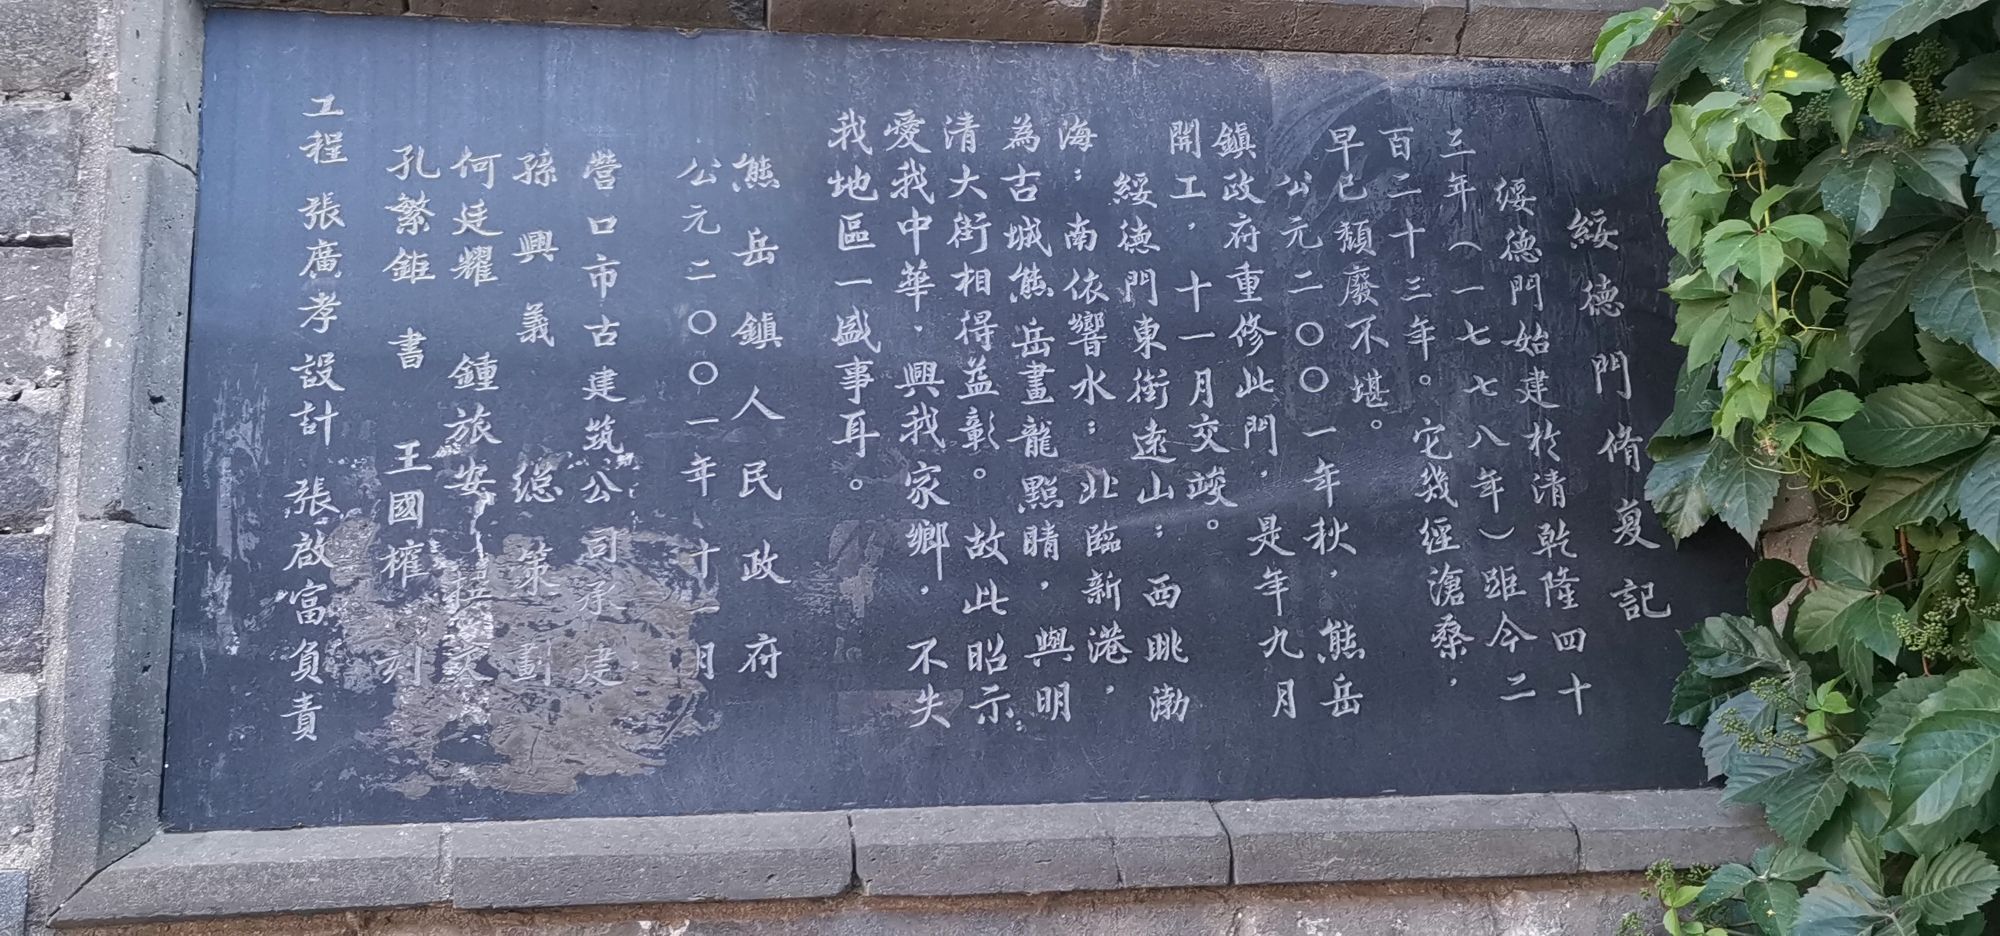 綏德門脩夏記
綏德門始建於清乾隆四十
三年（一七七八年）距今二
百二十三年。它幾經滄桑，
早已頹廢不堪。
公元二〇〇一年秋，熊岳
鎮政府重修此門，是年九月
開工，十一月交竣。
綏德門東街遠山；西眺渤
海；南依響水；北臨新港，
為古城熊岳畫龍點睛，與明
清大街相得益彰。故此昭示：
愛我中華，興我家鄉，不失
我地區一盛事耳。
熊岳鎮人民政府
公元二〇〇一年十一月
營口市古建筑公司承建
孫興義總策劃
何廷耀 鍾旅安 撰文
孔繁鉅書 王國權刻
工程 張廣孝設計 張啟富負責